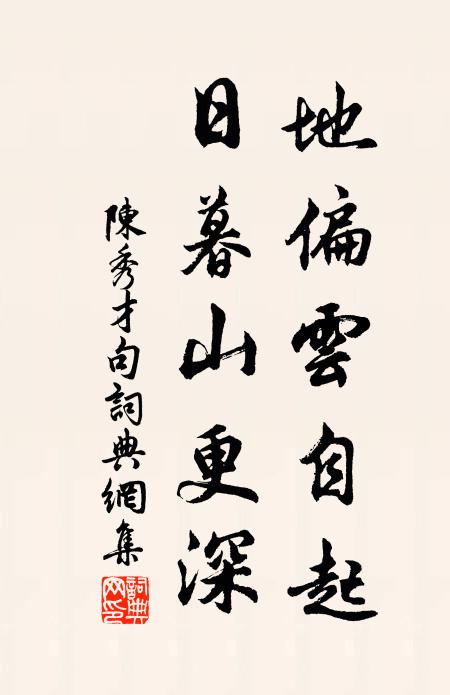 地偏雲自起
日暮山更深
陳秀才句詞典網集
詞典网印